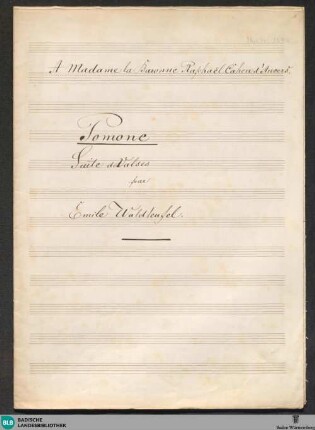 A Madame la Baronne Raphaël Cahen d'Anvers.
Pomone
Suite de Valses
par
Emile Waldteufel.
BLB BADISCHE
LANDESBIBLIOTHEK
Baden-Württemberg